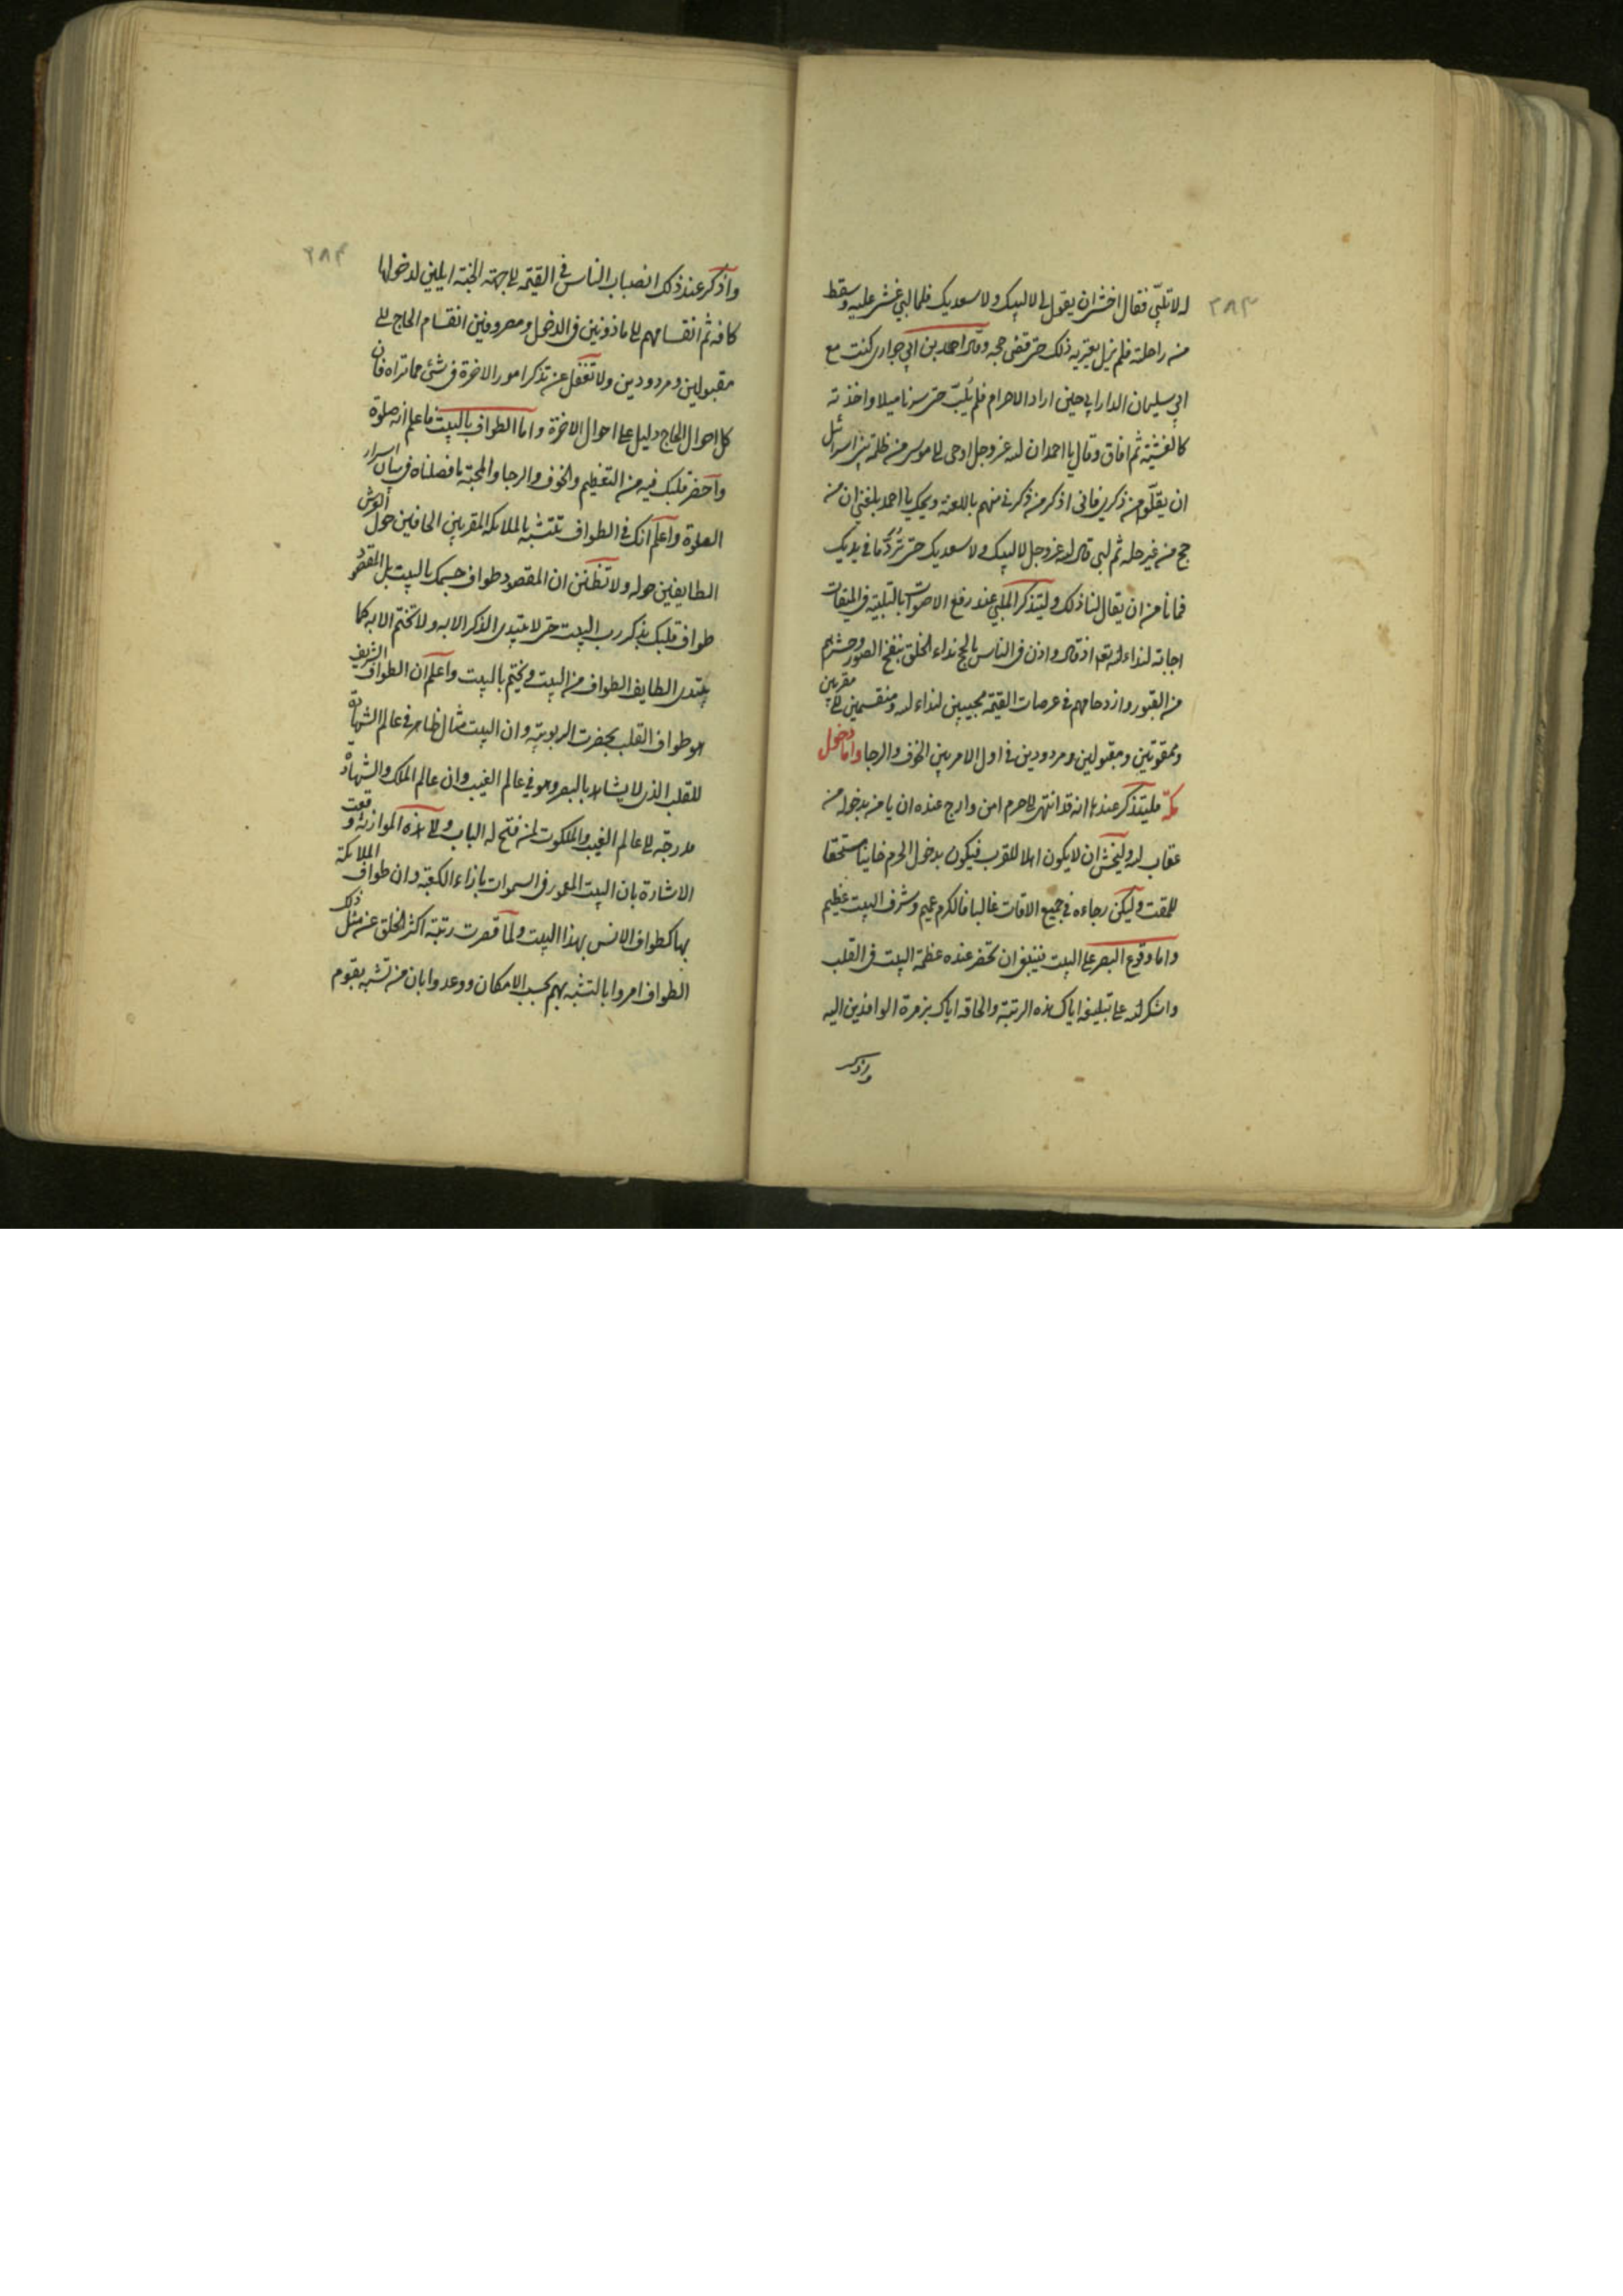 ٢٨٣
له لا تلبّي فقال اخشى ان يقول لى لا لبيك ولا سعديك فلما لبي غشى عليه وسقط
من راحلته فلم يزل يعتريه ذلك حتى قضى حجه وقال احمد بن ابي حواري كنت مع
ابي سليمان الداراني حين اراد الاحرام فلم يُلبّ حتى سرنا ميلا واخذته
كالغشية ثم افاق وقال يا احمد ان الله عز وجل اوحى الى موسى مر ظلمة بني اسرائيل
ان يقلّوا من ذكري فانى اذكر من ذكرني منهم باللعنة ويحك يا احمد بلغني ان من
حج من غير حله ثم لبى قال الله عز وجل لا لبيك ولا سعديك حتى تَرُدَّ ما في يديك
فما نامن ان يقال لنا ذلك وليتذكر الملبي عند رفع الاصوات بالتلبية في الميقات
اجابته لنداء الله تعالى اذ قال واذن في الناس بالحج نداء الخلق بنفخ الصور وحشرهم
من القبور وازدحامهم في عرصات القيمة مجيبين لنداء الله ومنقسمين الى مقربين
وممقوتين ومقبولين ومردودين في اول الامر بين الخوف والرجا واما دخول
مكة فليتذكر عندها انه قد انتهى الى حرم امن وليرج عنده ان يامن بدخوله من
عقاب الله وليخش ان لا يكون اهلا للقرب فيكون بدخول الحرم خايبا مستحقا
للمقت وليكن رجاءه في جميع الاوقات غالبا فالكرم عميم وشرف البيت عظيم
واما وقوع البصر على البيت فينبغى ان تحضر عنده عظمة البيت في القلب
واشكر الله على تبليغه اياك هذه الرتبة والحاقه اياك بزمرة الوافدين اليه
واذكر
٢٨٤
واذكر عند ذلك انصباب الناس في القيمة الى جهة الجنة املين لدخولها
كافة ثم انقسامهم الى ماذونين في الدخول ومصروفين انقسام الحاج الى
مقبولين ومردودين ولا تغفل عن تذكر امور الاخرة في شئ مما تراه فان
كل احوال الحاج دليل على احوال الاخرة واما الطواف بالبيت فاعلم انه صلوة
واحضر قلبك فيه من التعظيم والخوف والرجا والمحبة ما فصلناه في بيان اسرار
الصلوة واعلم انك في الطواف تتشبه بالملائكة المقربين الحافين حول العرش
الطايفين حوله ولا تظنن ان المقصود طواف جسمك بالبيت بل المقصود
طواف قلبك بذكر رب البيت حتى لا يبتدى الذكر الا به ولا تختم الا به كما
يبتدى الطايف الطواف من البيت ويختم بالبيت واعلم ان الطواف الشريف
هو طواف القلب بحضرت الربوبية وان البيت مثال ظاهر في عالم الشهادة
للقلب الذى لا يشاهد بالبصر وهو في عالم الغيب وان عالم الملك والشهادة
مدرجة الى عالم الغيب والملكوت لمن فتح له الباب والى هذه الموازنة وقعت
الاشارة بان البيت المعمور في السموات بازاء الكعبة وان طواف الملايكة
بها كطواف الانس بهذا البيت ولما قصرت رتبة اكثر الخلق عن مثل ذلك
الطواف امروا بالتشبه بهم بحسب الامكان ووعدوا بان من تشبه بقوم